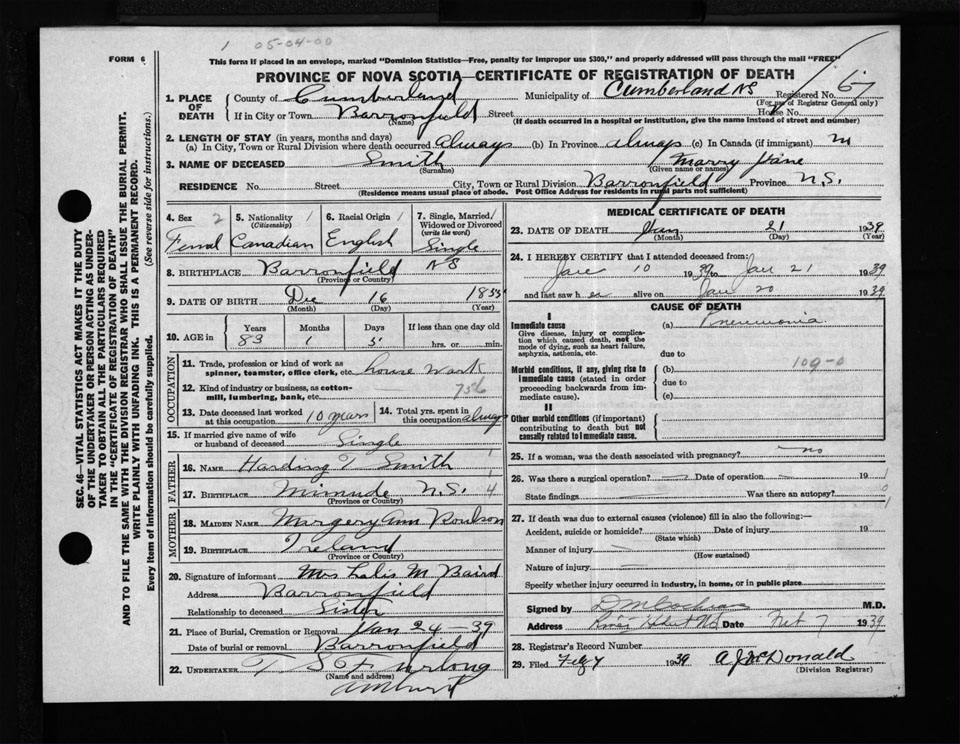 1 05-04-00
FORM 6
This form if placed in an envelope, marked "Dominion Statistics—Free, penalty for improper use $300," and properly addressed will pass through the mail "FREE"
PROVINCE OF NOVA SCOTIA—CERTIFICATE OF REGISTRATION OF DEATH
SEC. 46—VITAL STATISTICS ACT MAKES IT THE DUTY
OF THE UNDERTAKER OR PERSON ACTING AS UNDER-
TAKER TO OBTAIN ALL THE PARTICULARS REQUIRED
IN THE "CERTIFICATE OF REGISTRATION OF DEATH"
AND TO FILE THE SAME WITH THE DIVISION REGISTRAR WHO SHALL ISSUE THE BURIAL PERMIT.
WRITE PLAINLY WITH UNFADING INK. THIS IS A PERMANENT RECORD.
Every item of Information should be carefully supplied. (See reverse side for instructions.)
1. PLACE OF DEATH
County of Cumberland Municipality of Cumberland NS Registered No. 67
(For use of Registrar General only)
If in City or Town Barronfield Street House No.
(Name) (If death occurred in a hospital or institution, give the name instead of street and number)
2. LENGTH OF STAY (in years, months and days)
(a) In City, Town or Rural Division where death occurred always (b) In Province always (c) In Canada (if immigrant)
3. NAME OF DECEASED Smith Marry Jane
(Surname) (Given name or names)
RESIDENCE No. Street City, Town or Rural Division Barronfield Province N.S.
(Residence means usual place of abode. Post Office Address for residents in rural parts not sufficient)
4. Sex 2 5. Nationality 1 6. Racial Origin 1 7. Single, Married, Widowed or Divorced
(Citizenship) (write the word)
Femal Canadian English Single
8. BIRTHPLACE Barronfield NS
(Province or Country)
9. DATE OF BIRTH Dec 16 1855
(Month) (Day) (Year)
10. AGE in Years Months Days If less than one day old
83 1 5 hrs. or min.
OCCUPATION
11. Trade, profession or kind of work as
spinner, teamster, office clerk, etc. house work
12. Kind of industry or business, as cotton-
mill, lumbering, bank, etc. 756
13. Date deceased last worked at this occupation 10 years 14. Total yrs. spent in this occupation always
15. If married give name of wife
or husband of deceased Single
FATHER
16. NAME Harding T Smith 1
17. BIRTHPLACE Minude N.S. 4
(Province or Country)
MOTHER
18. MAIDEN NAME Margery Ann Roulson
19. BIRTHPLACE Ireland
(Province or Country)
20. Signature of informant Mrs M Baird
Address Barronfield
Relationship to deceased Sister
21. Place of Burial, Cremation or Removal Jan 24—39
Date of burial or removal Barronfield
22. UNDERTAKER Furlong
(Name and address)
Amherst
MEDICAL CERTIFICATE OF DEATH
23. DATE OF DEATH Jan 21 1939
(Month) (Day) (Year)
24. I HEREBY CERTIFY that I attended deceased from:
Jan 10 1939 to Jan 21 1939
and last saw her alive on Jan 20 1939
CAUSE OF DEATH
I
Immediate cause (a) Pneumonia
Give disease, injury or complica-
tion which caused death, not the
mode of dying, such as heart failure,
asphyxia, asthenia, etc. due to
Morbid conditions, if any, giving rise to (b) 109-0
immediate cause (stated in order due to
proceeding backwards from im-
mediate cause). (c)
II
Other morbid conditions (if important)
contributing to death but not
causally related to immediate cause.
25. If a woman, was the death associated with pregnancy? no
26. Was there a surgical operation? Date of operation 19 1
State findings Was there an autopsy? 0
1
27. If death was due to external causes (violence) fill in also the following:—
Accident, suicide or homicide? Date of injury 19
(State which)
Manner of injury
(How sustained)
Nature of injury
Specify whether injury occurred in industry, in home, or in public place
Signed by D M Cochran M.D.
Address River Hebert NS Date Feb 7 1939
28. Registrar's Record Number
29. Filed Feb 7 1939 A J McDonald
(Division Registrar)